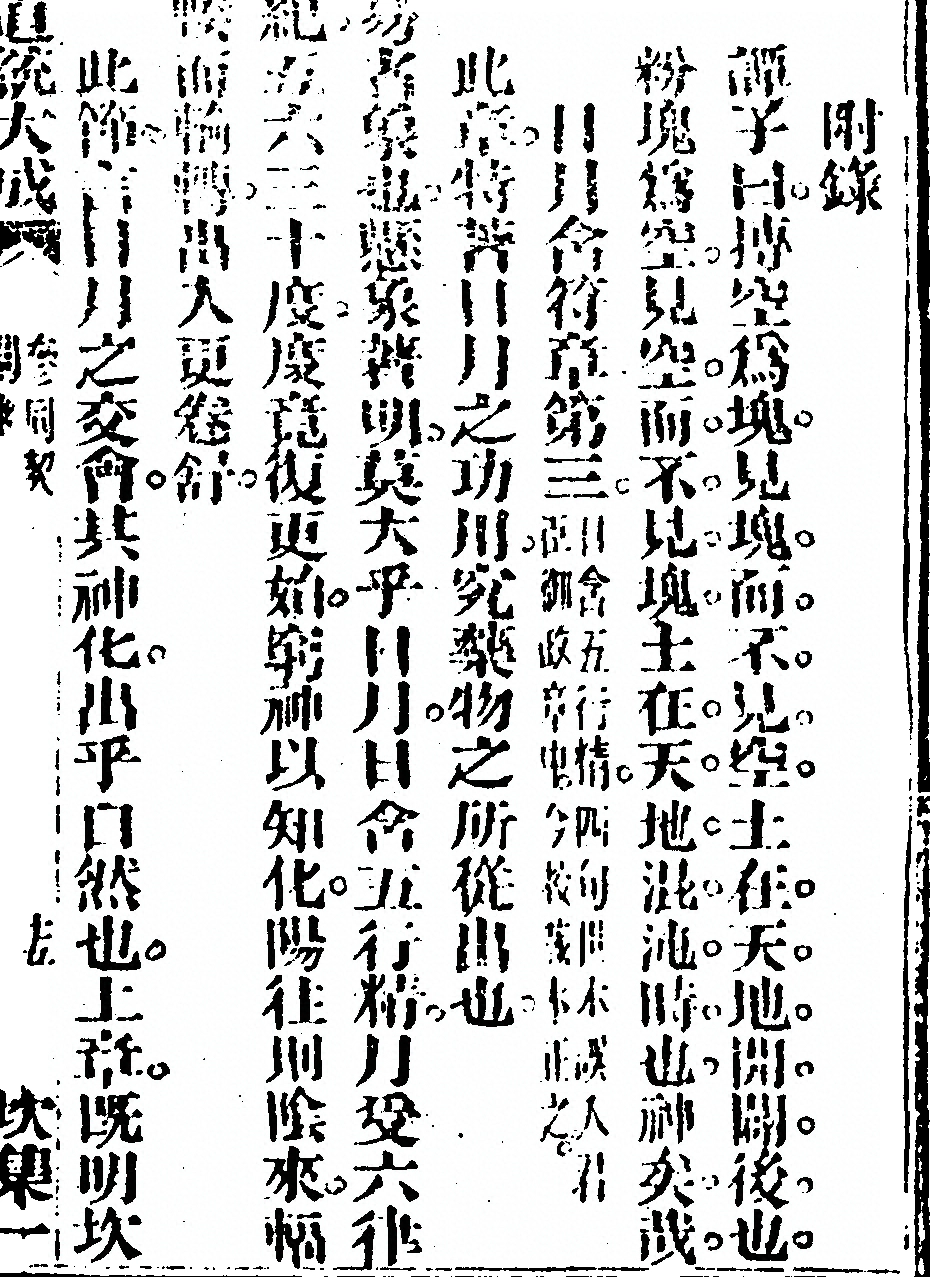 附錄
譚子曰摶空爲塊見塊而不見空土在天地開闢後也
粉塊爲空見空而不見塊土在天地混沌時也神矣哉
日月含符章第三
日含五行精四句舊本誤入君
臣御政章中今按漢本正之
此章特著日月之功用究藥物之所從出也
易者象也懸象著明莫大乎日月日含五行精月受六律
紀五六三十度度竟復更始窮神以知化陽往則陰來輻
輳而輪轉出入更卷舒
此節言日月之交會其神化出乎自然也上章既明坎
道統大成
參同契
坎集一